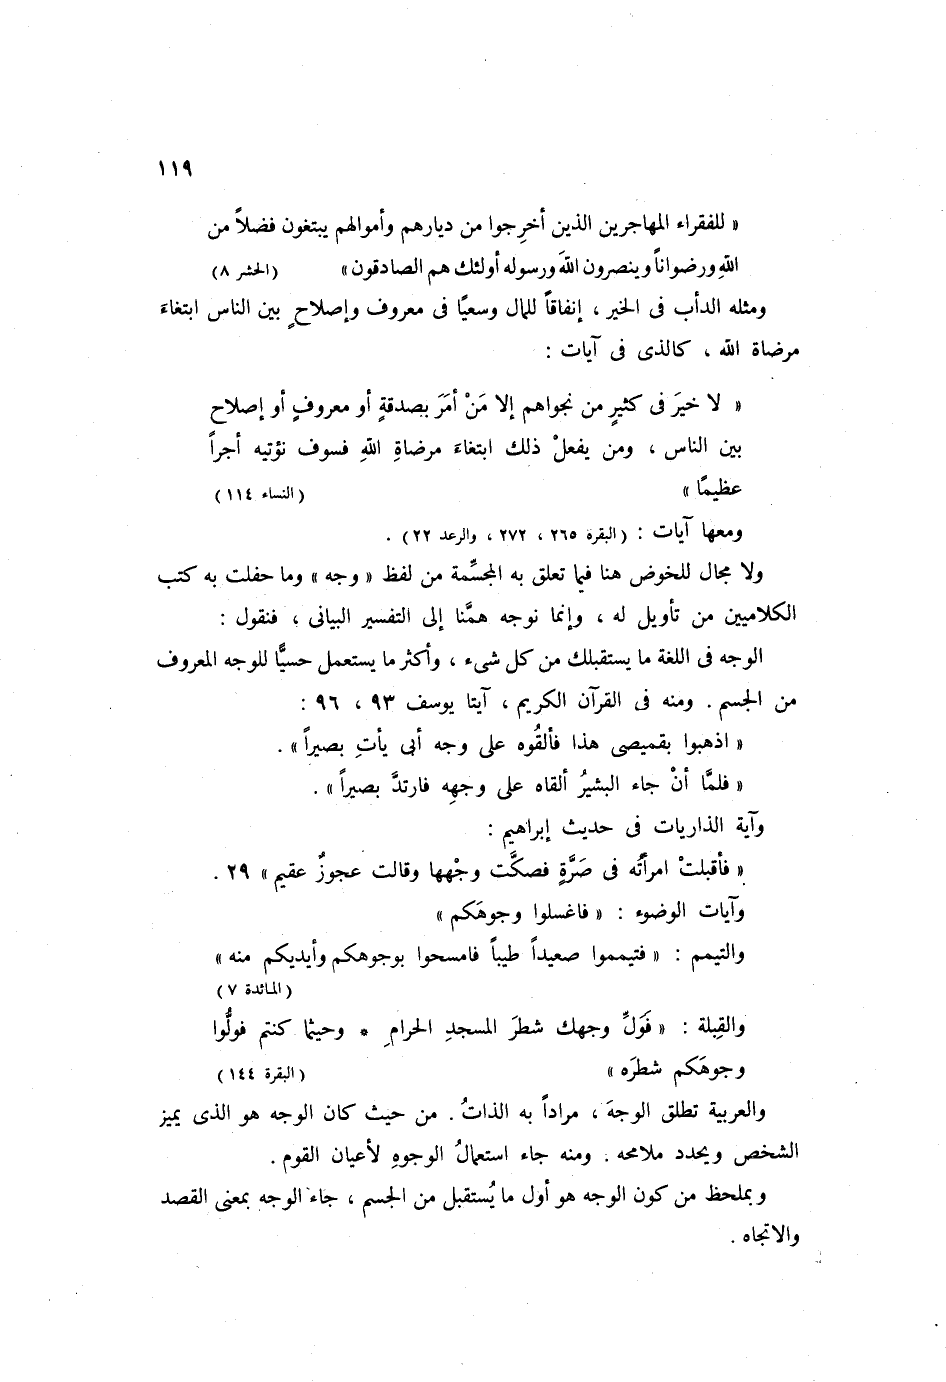 ١١٩
« للفقراء المهاجرين الذين أخرِجوا من ديارهم وأموالهم يبتغون فضلاً من
اللهِ ورضواناً وينصرون اللهَ ورسوله أولئك هم الصادقون » (الحشر ٨)
ومثله الدأب فى الخير ، إنفاقاً للمال وسعيًا فى معروف وإصلاحٍ بين الناس ابتغاءَ
مرضاة الله ، كالذى فى آيات :
« لا خيرَ فى كثيرٍ من نجواهم إلا مَنْ أمَرَ بصدقةٍ أو معروفٍ أو إصلاح
بين الناس ، ومن يفعلْ ذلك ابتغاءَ مرضاةِ اللهِ فسوف نؤتيه أجراً
عظيمًا » (النساء ١١٤)
ومعها آيات : (البقرة ٢٦٥ ، ٢٧٢ ، والرعد ٢٢) .
ولا مجال للخوض هنا فيما تعلق به المجسِّمة من لفظ « وجه » وما حفلت به كتب
الكلاميين من تأويل له ، وإنما نوجه همَّنا إلى التفسير البيانى ، فنقول :
الوجه فى اللغة ما يستقبلك من كل شىء ، وأكثر ما يستعمل حسيًّا للوجه المعروف
من الجسم . ومنه فى القرآن الكريم ، آيتا يوسف ٩٣ ، ٩٦ :
« اذهبوا بقميصى هذا فألقُوه على وجه أبى يأتِ بصيراً » .
« فلمَّا أنْ جاء البشيرُ ألقاه على وجهِه فارتدَّ بصيراً » .
وآية الذاريات فى حديث إبراهيم :
« فأقبلتْ امرأتُه فى صَرَّةٍ فصكَّت وجْهها وقالت عجوزٌ عقيم » ٢٩ .
وآيات الوضوء : « فاغسلوا وجوهَكم »
والتيمم : « فتيمموا صعيداً طيباً فامسحوا بوجوهكم وأيديكم منه »
(المائدة ٧)
والقِبلة : « فَوَلِّ وجهك شطرَ المسجدِ الحرامِ * وحيثما كنتم فولُّوا
وجوهَكم شطرَه » (البقرة ١٤٤)
والعربية تطلق الوجهَ ، مراداً به الذاتُ . من حيث كان الوجه هو الذى يميز
الشخص ويحدد ملامحه . ومنه جاء استعمالُ الوجوهِ لأعيان القوم .
وبملحظ من كون الوجه هو أول ما يُستقبل من الجسم ، جاء الوجه بمعنى القصد
والاتجاه .